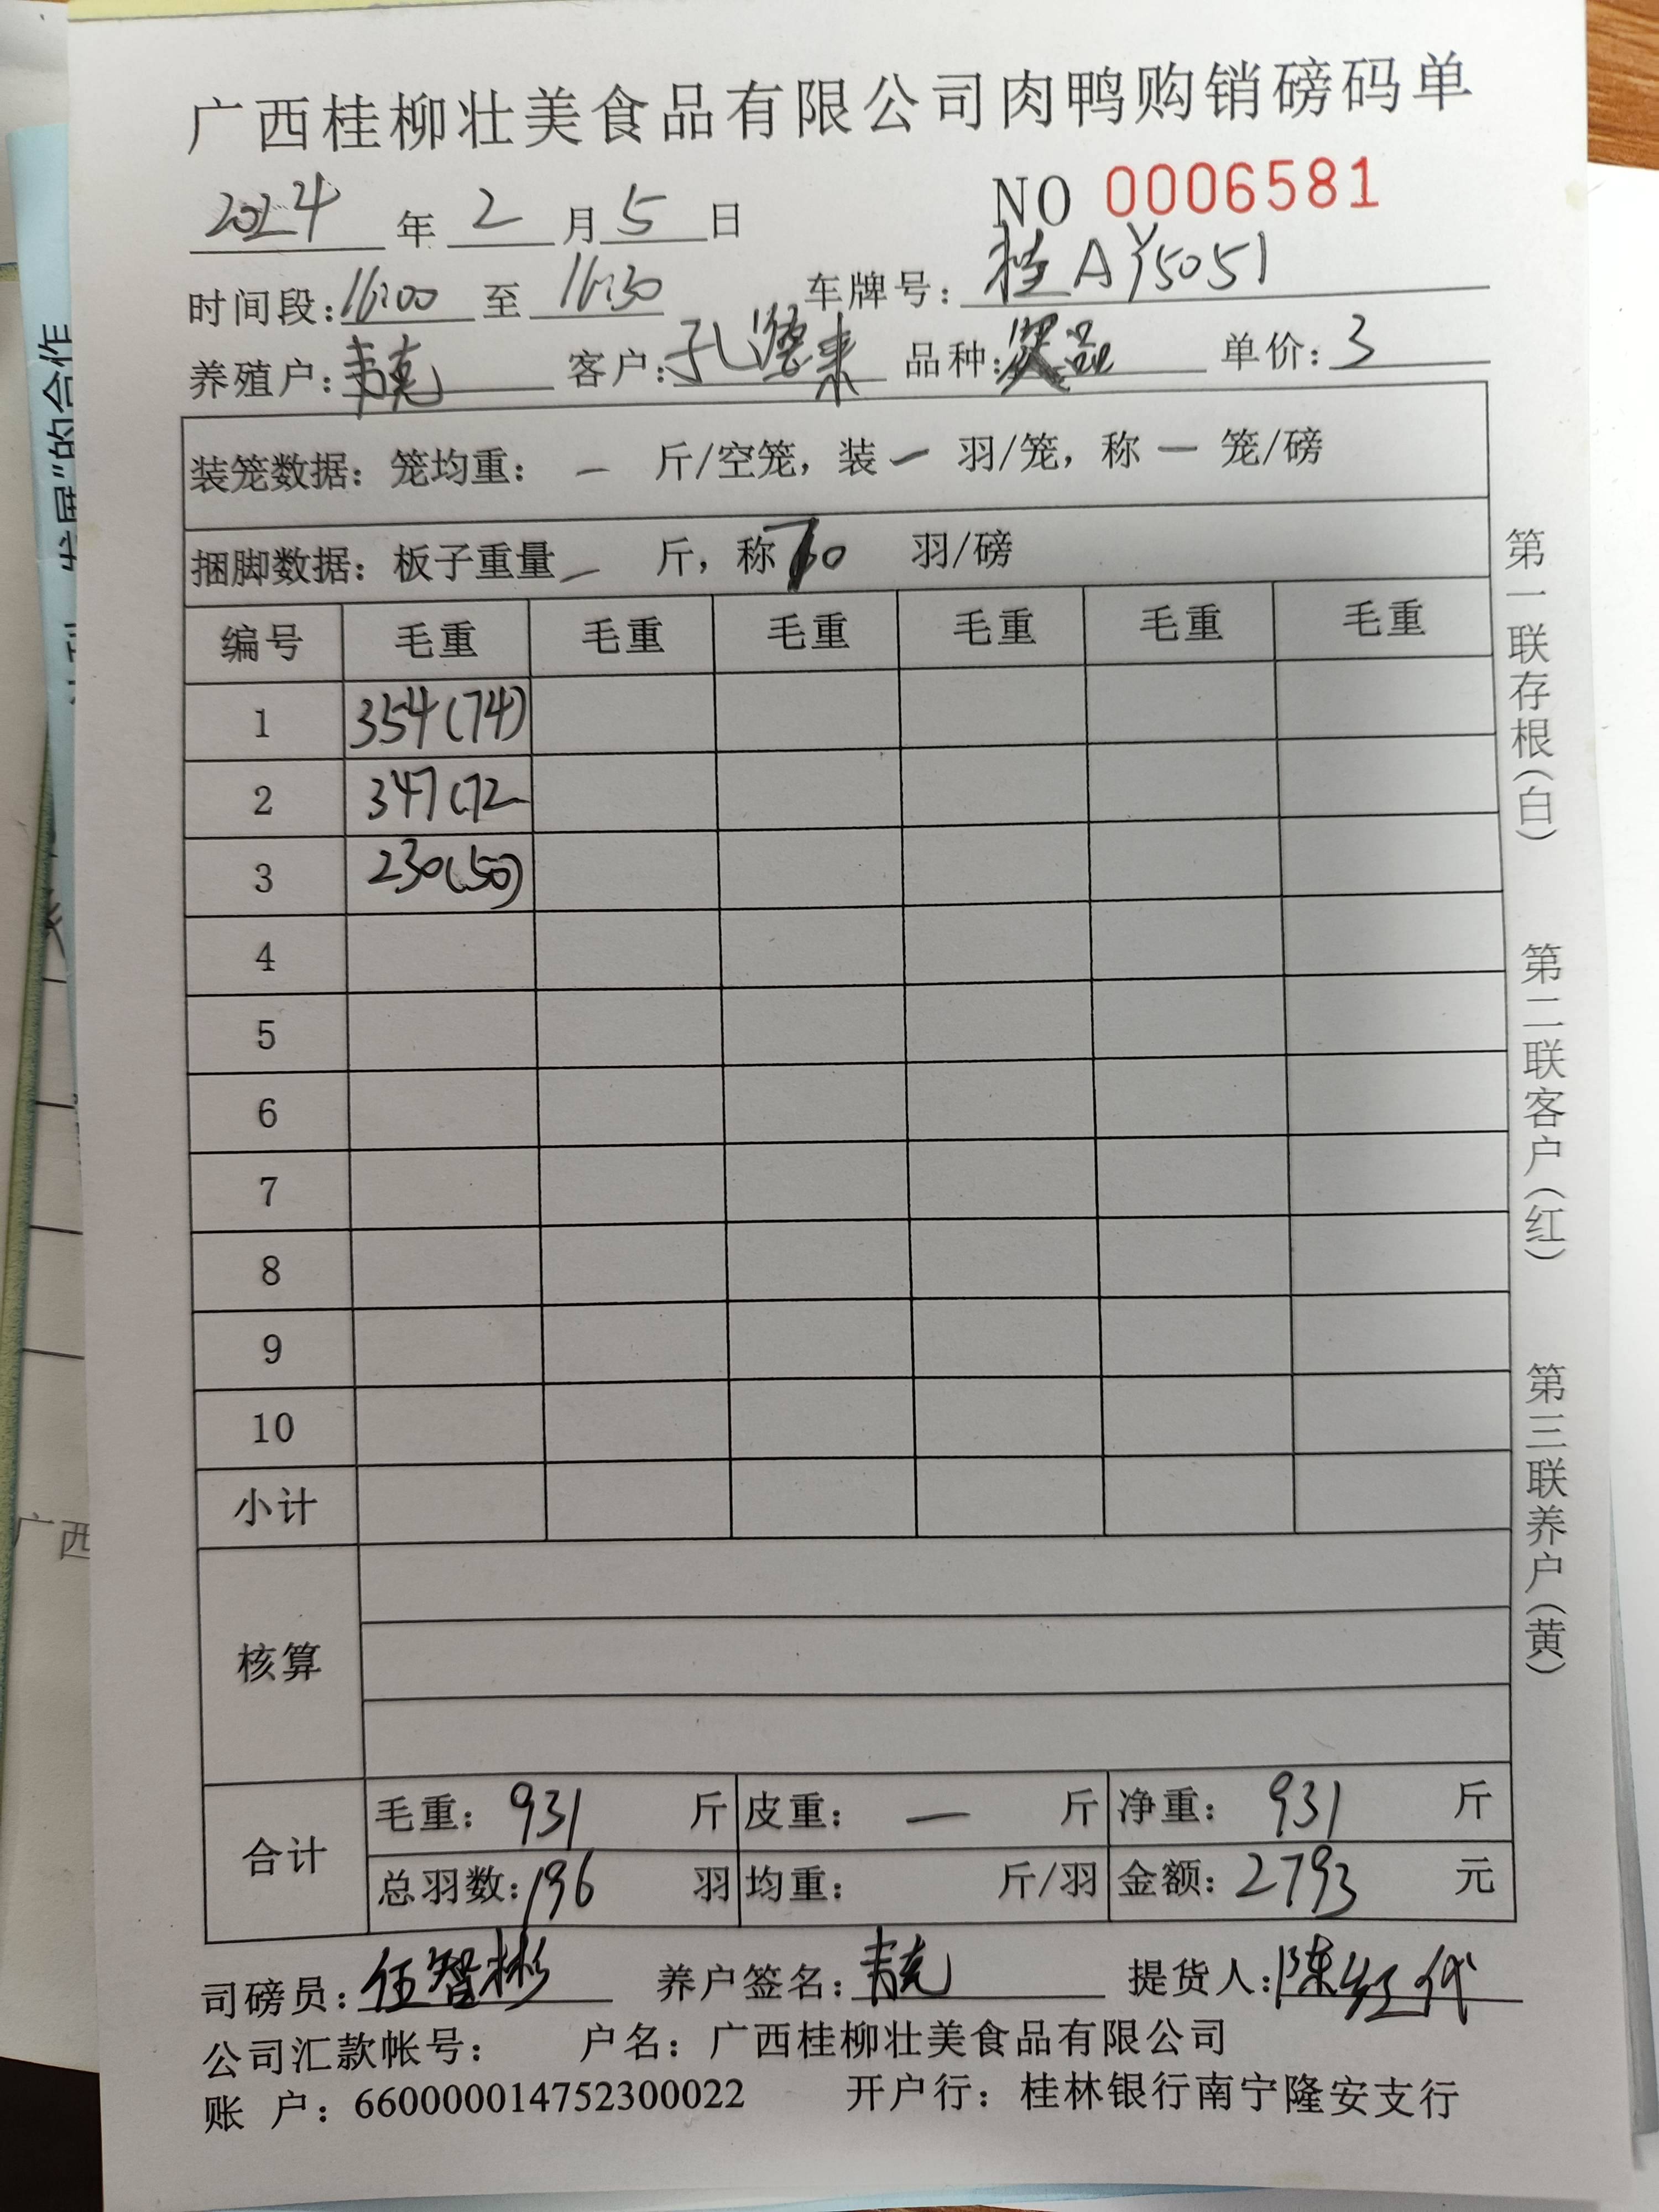 广西桂柳壮美食品有限公司肉鸭购销磅码单
2024 年 2 月 5 日 NO 0006581
时间段:16:00 至 16:30 车牌号: 桂AY5051
养殖户: 韦克 客户: 孔德来 品种: 单价: 3
装笼数据: 笼均重: — 斤/空笼, 装 — 羽/笼, 称 — 笼/磅
捆脚数据: 板子重量 — 斤, 称 羽/磅
编号 毛重 毛重 毛重 毛重 毛重 毛重
1 354(74)
2 347(72
3 230(50)
4
5
6
7
8
9
10
小计
核算
合计
毛重: 931 斤 皮重: — 斤 净重: 931 斤
总羽数: 196 羽 均重: 斤/羽 金额: 2793 元
司磅员: 伍智彬 养户签名: 韦克 提货人: 陈红代
公司汇款帐号: 户名: 广西桂柳壮美食品有限公司
账 户: 660000014752300022 开户行: 桂林银行南宁隆安支行
第一联存根(白)
第二联客户(红)
第三联养户(黄)
”的合作
广西